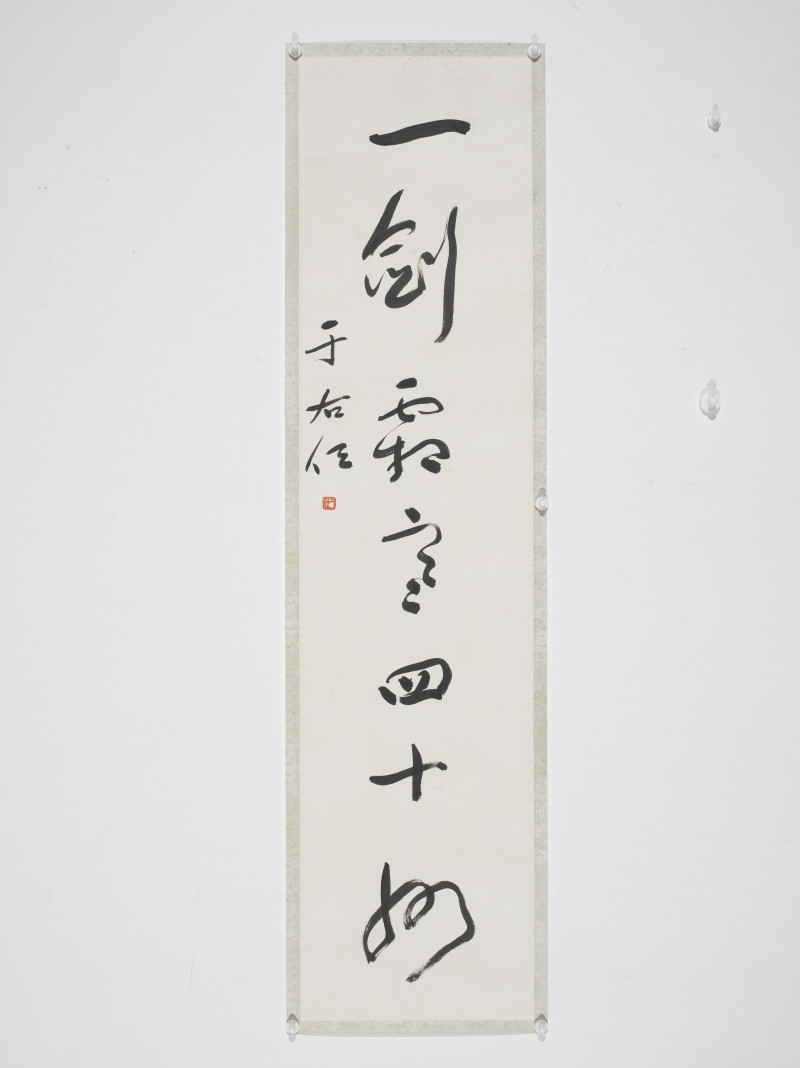 一劍霜寒四十州
于右任